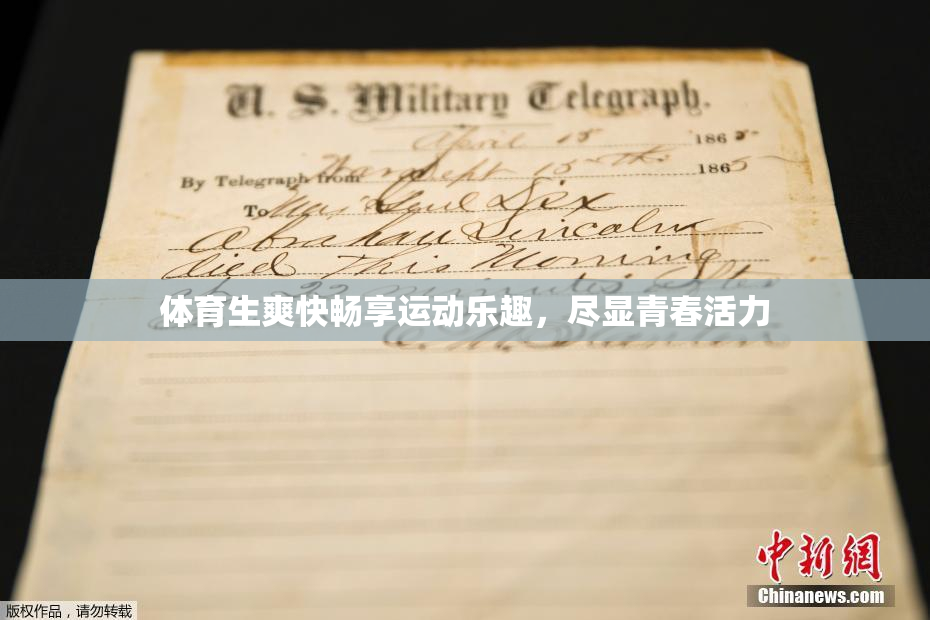 U. S. Military Telegraph.
April 15 1865
By Telegraph from War Dept 15th 1865
To Maj Genl Dix
Abraham Lincoln
died This Morning
at 22 minutes after
体育生爽快畅享运动乐趣，尽显青春活力
中新网
Chinanews.com
版权作品，请勿转载